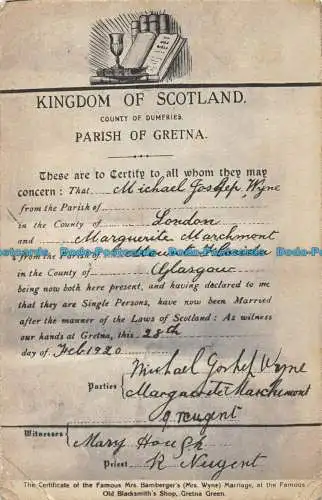 KINGDOM OF SCOTLAND.
COUNTY OF DUMFRIES.
PARISH OF GRETNA.
These are to Certify to all whom they may
concern: That Michael Joshep Wyne
from the Parish of
in the County of London
and Marguerite Marchmont
from the Parish of Mount Florida
in the County of Glasgow
being now both here present, and having declared to me
that they are Single Persons, have now been Married
after the manner of the Laws of Scotland: As witness
our hands at Gretna, this 28th
day of Feb 1920
Parties Michael Joshep Wyne
Marguerite Marchemont
Nugent
Witnesses Mary Hough
Priest R Nugent
The Certificate of the Famous Mrs. Bamberger's (Mrs. Wyne) Marriage, at the Famous
Old Blacksmith's Shop, Gretna Green.